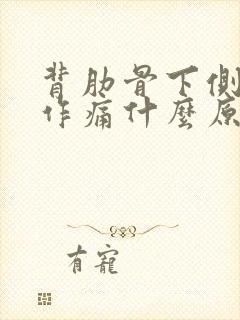 背肋骨下側
作痛什麼原
有寵